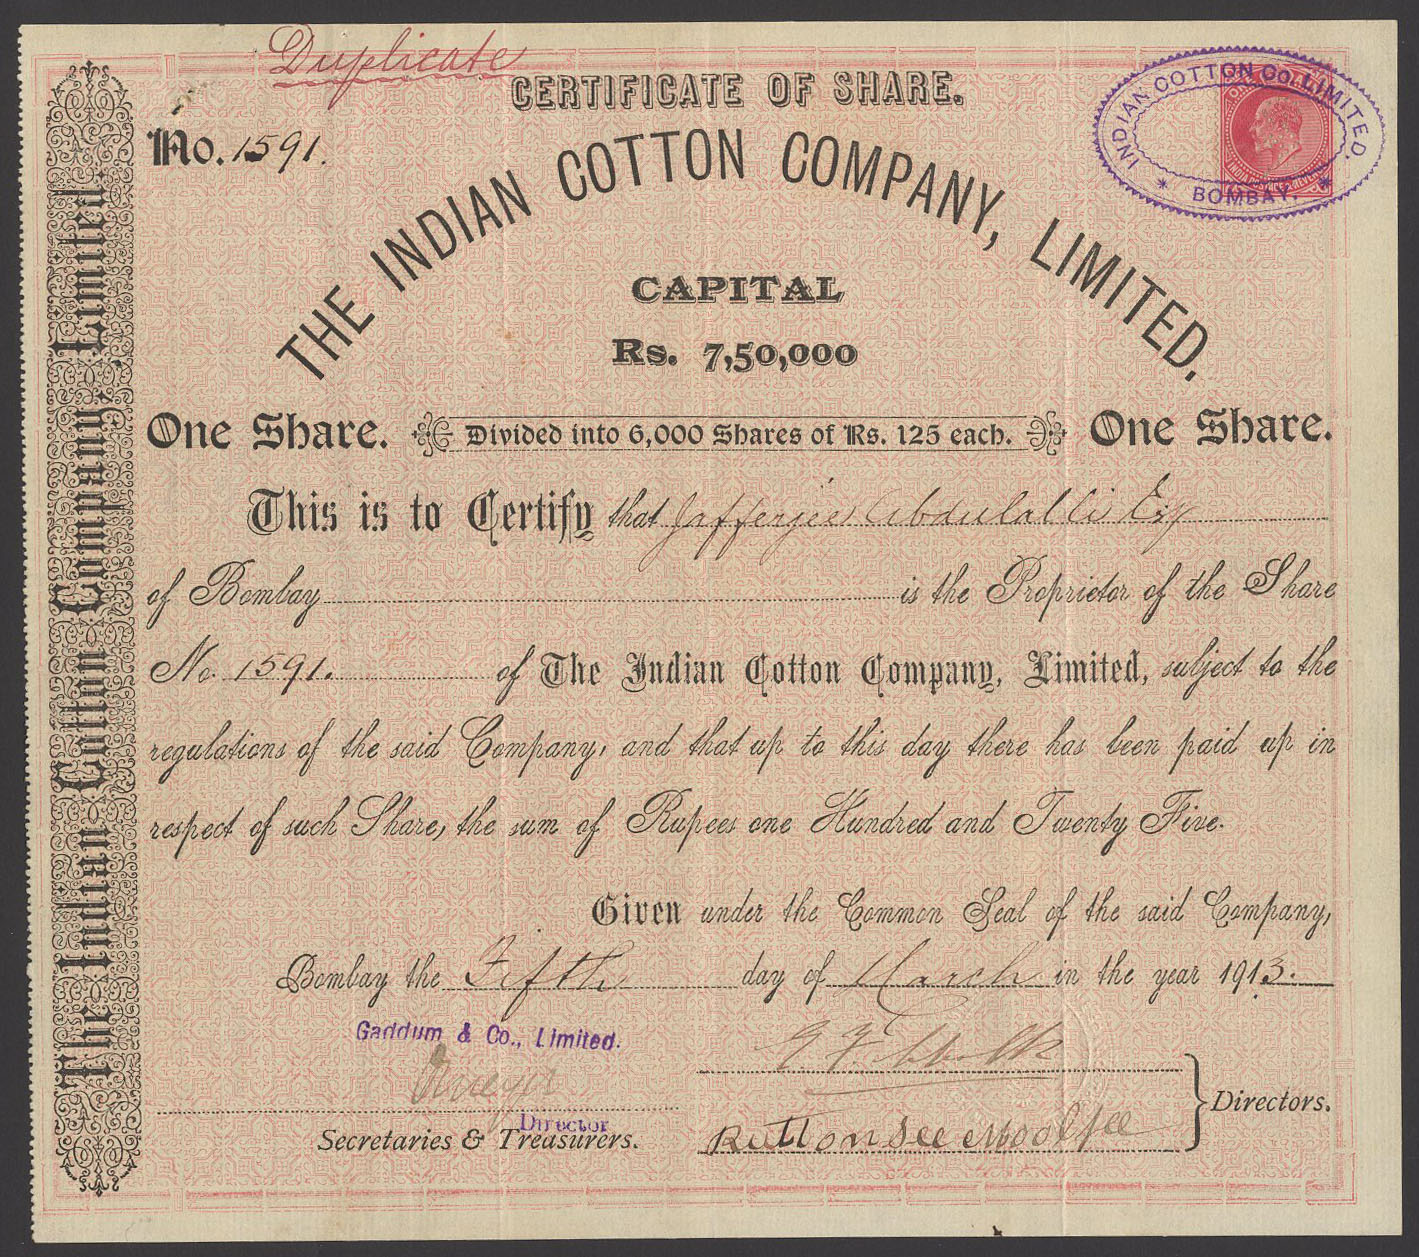 Duplicate
CERTIFICATE OF SHARE.
INDIAN COTTON CO. LIMITED.
* BOMBAY. *
No. 1591.
THE INDIAN COTTON COMPANY, LIMITED.
CAPITAL
Rs. 7,50,000
One Share. Divided into 6,000 Shares of Rs. 125 each. One Share.
This is to Certify that Jafferjee Abdulalli Esq
of Bombay is the Proprietor of the Share
No. 1591. of The Indian Cotton Company, Limited, subject to the
regulations of the said Company, and that up to this day there has been paid up in
respect of such Share, the sum of Rupees one Hundred and Twenty Five.
Given under the Common Seal of the said Company,
Bombay the Fifth day of March in the year 1913.
Gaddum & Co., Limited.
Director
Secretaries & Treasurers.
Ruttonsee Mooljee
Directors.
The Indian Cotton Company, Limited.